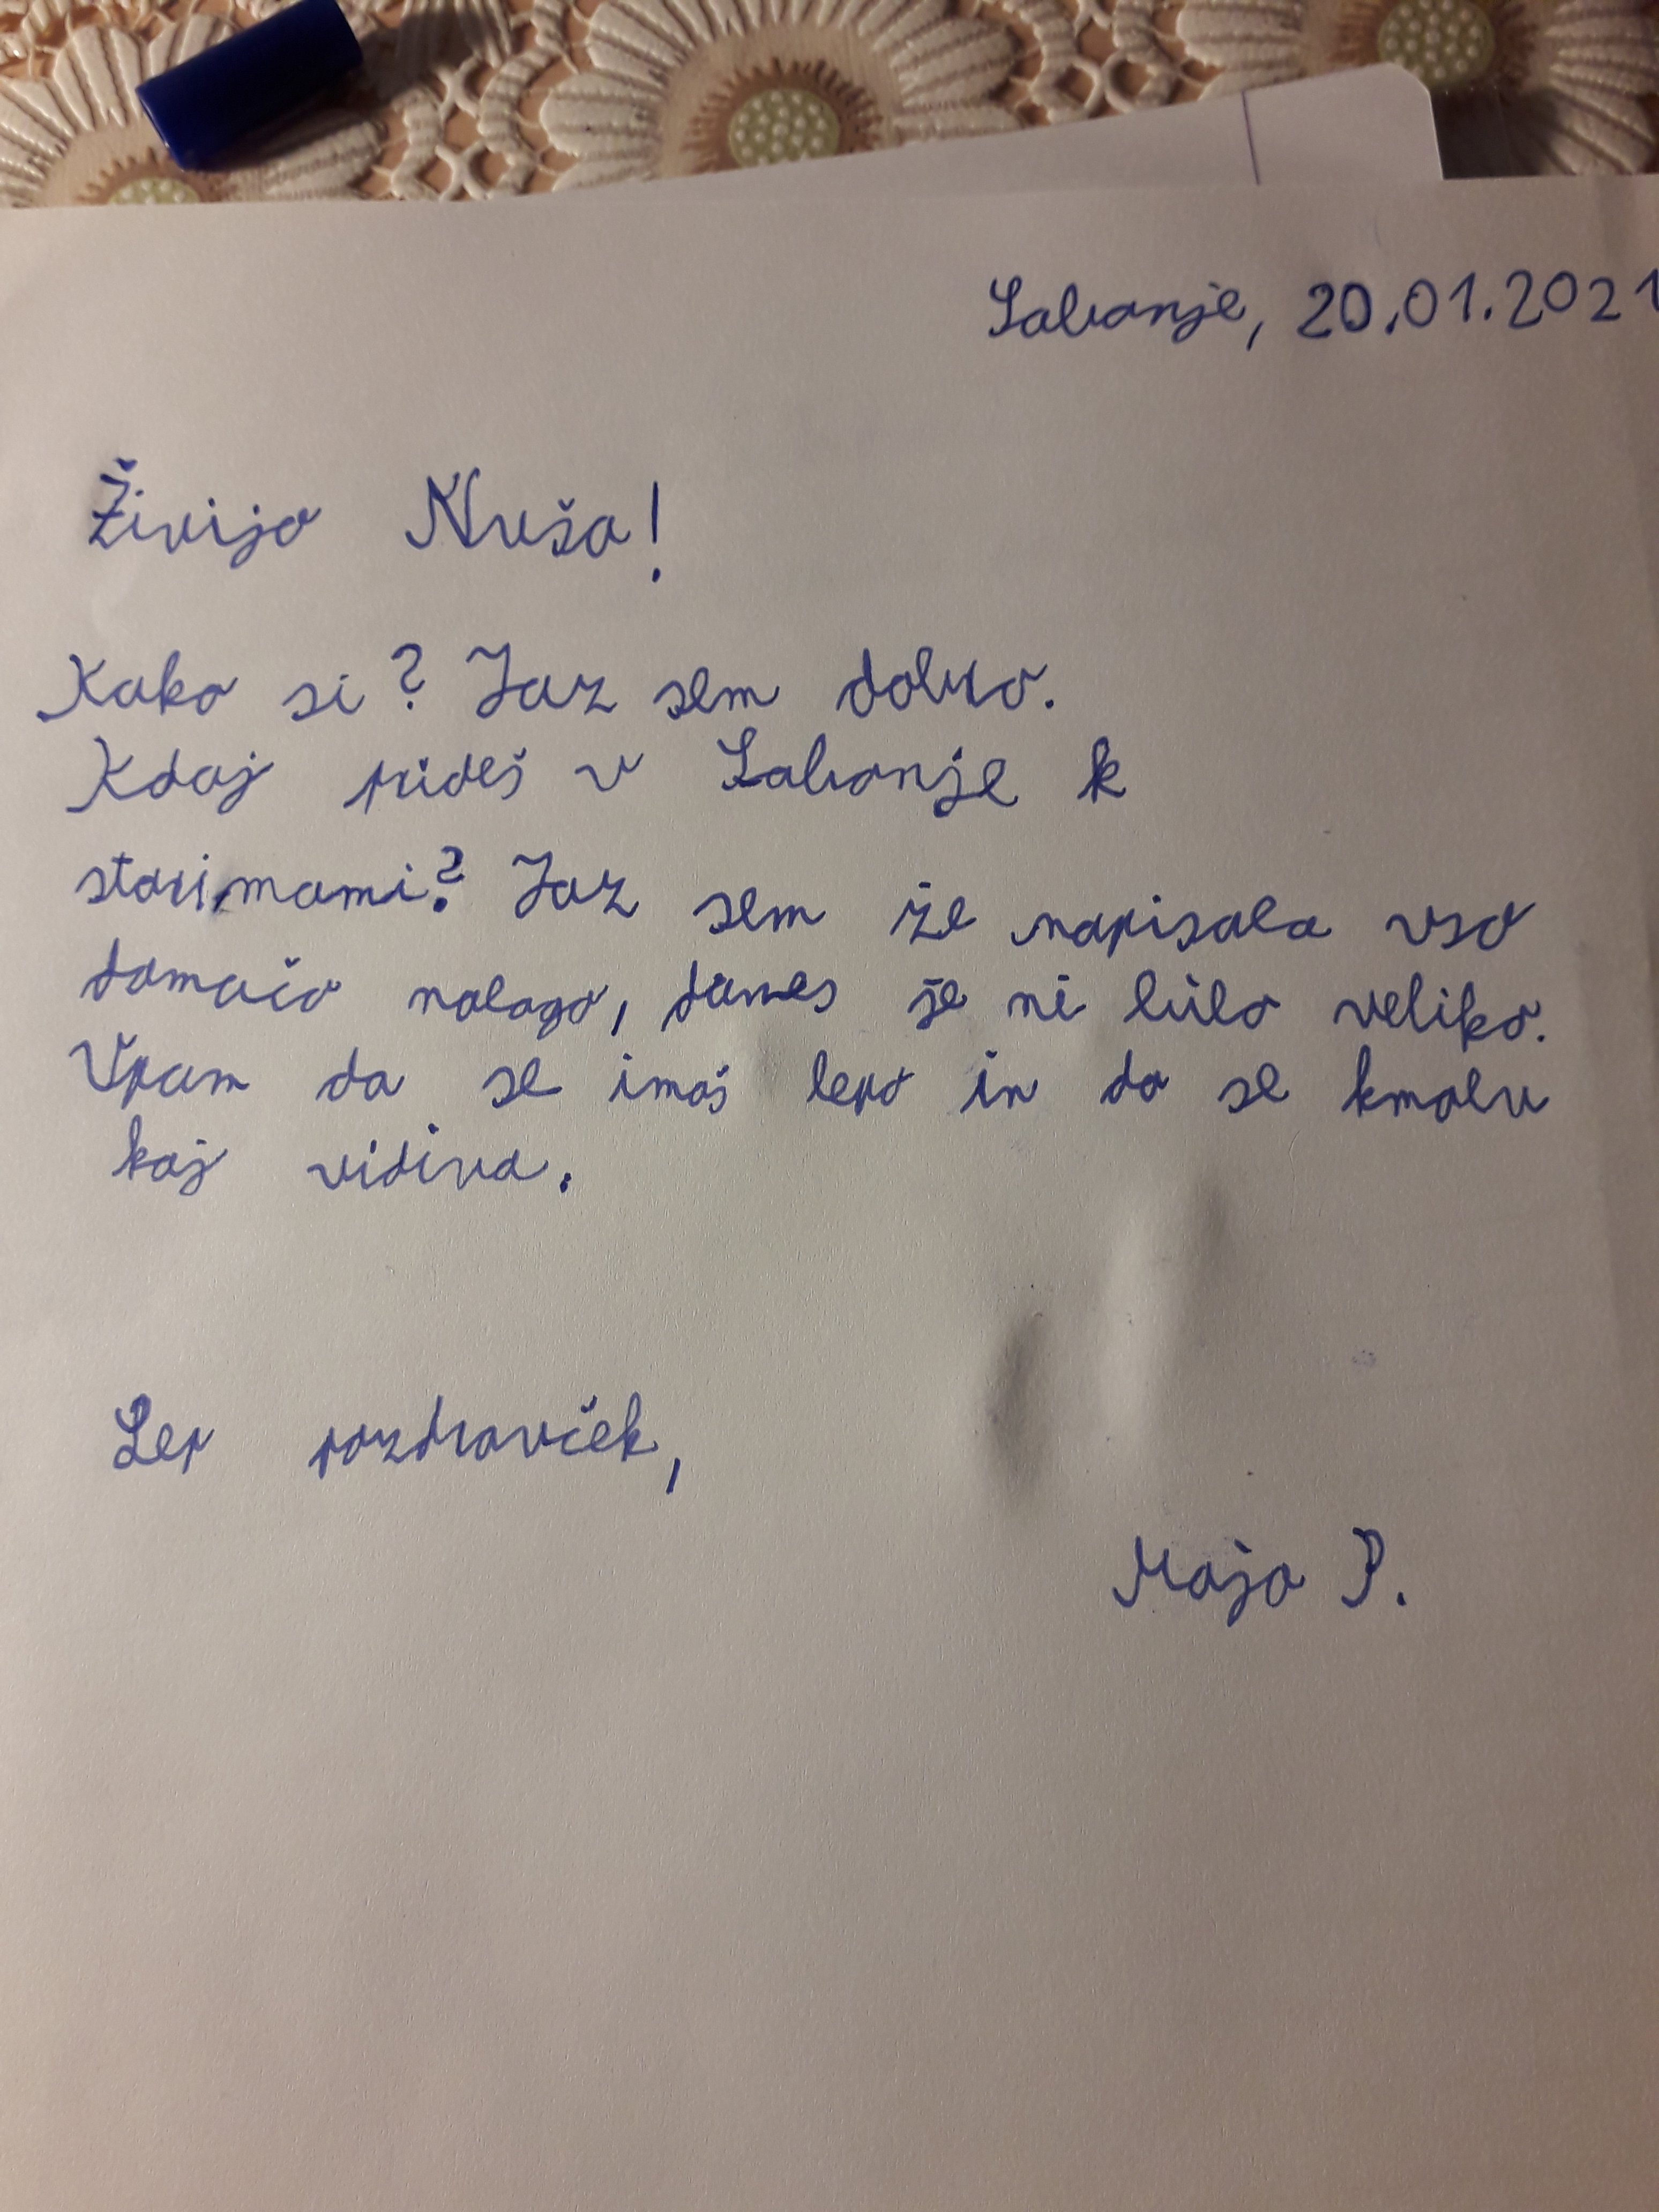 Sabanje, 20.01.2021
Živijo Nuša!
Kako si? Jaz sem dobro.
Kdaj prideš v Labanje k
starimami? Jaz sem že napisala vso
domačo nalogo, danes je ni bilo veliko.
Upam da se imaš lepo in da se kmalu
kaj vidiva.
Lep pozdravček,
Maja P.